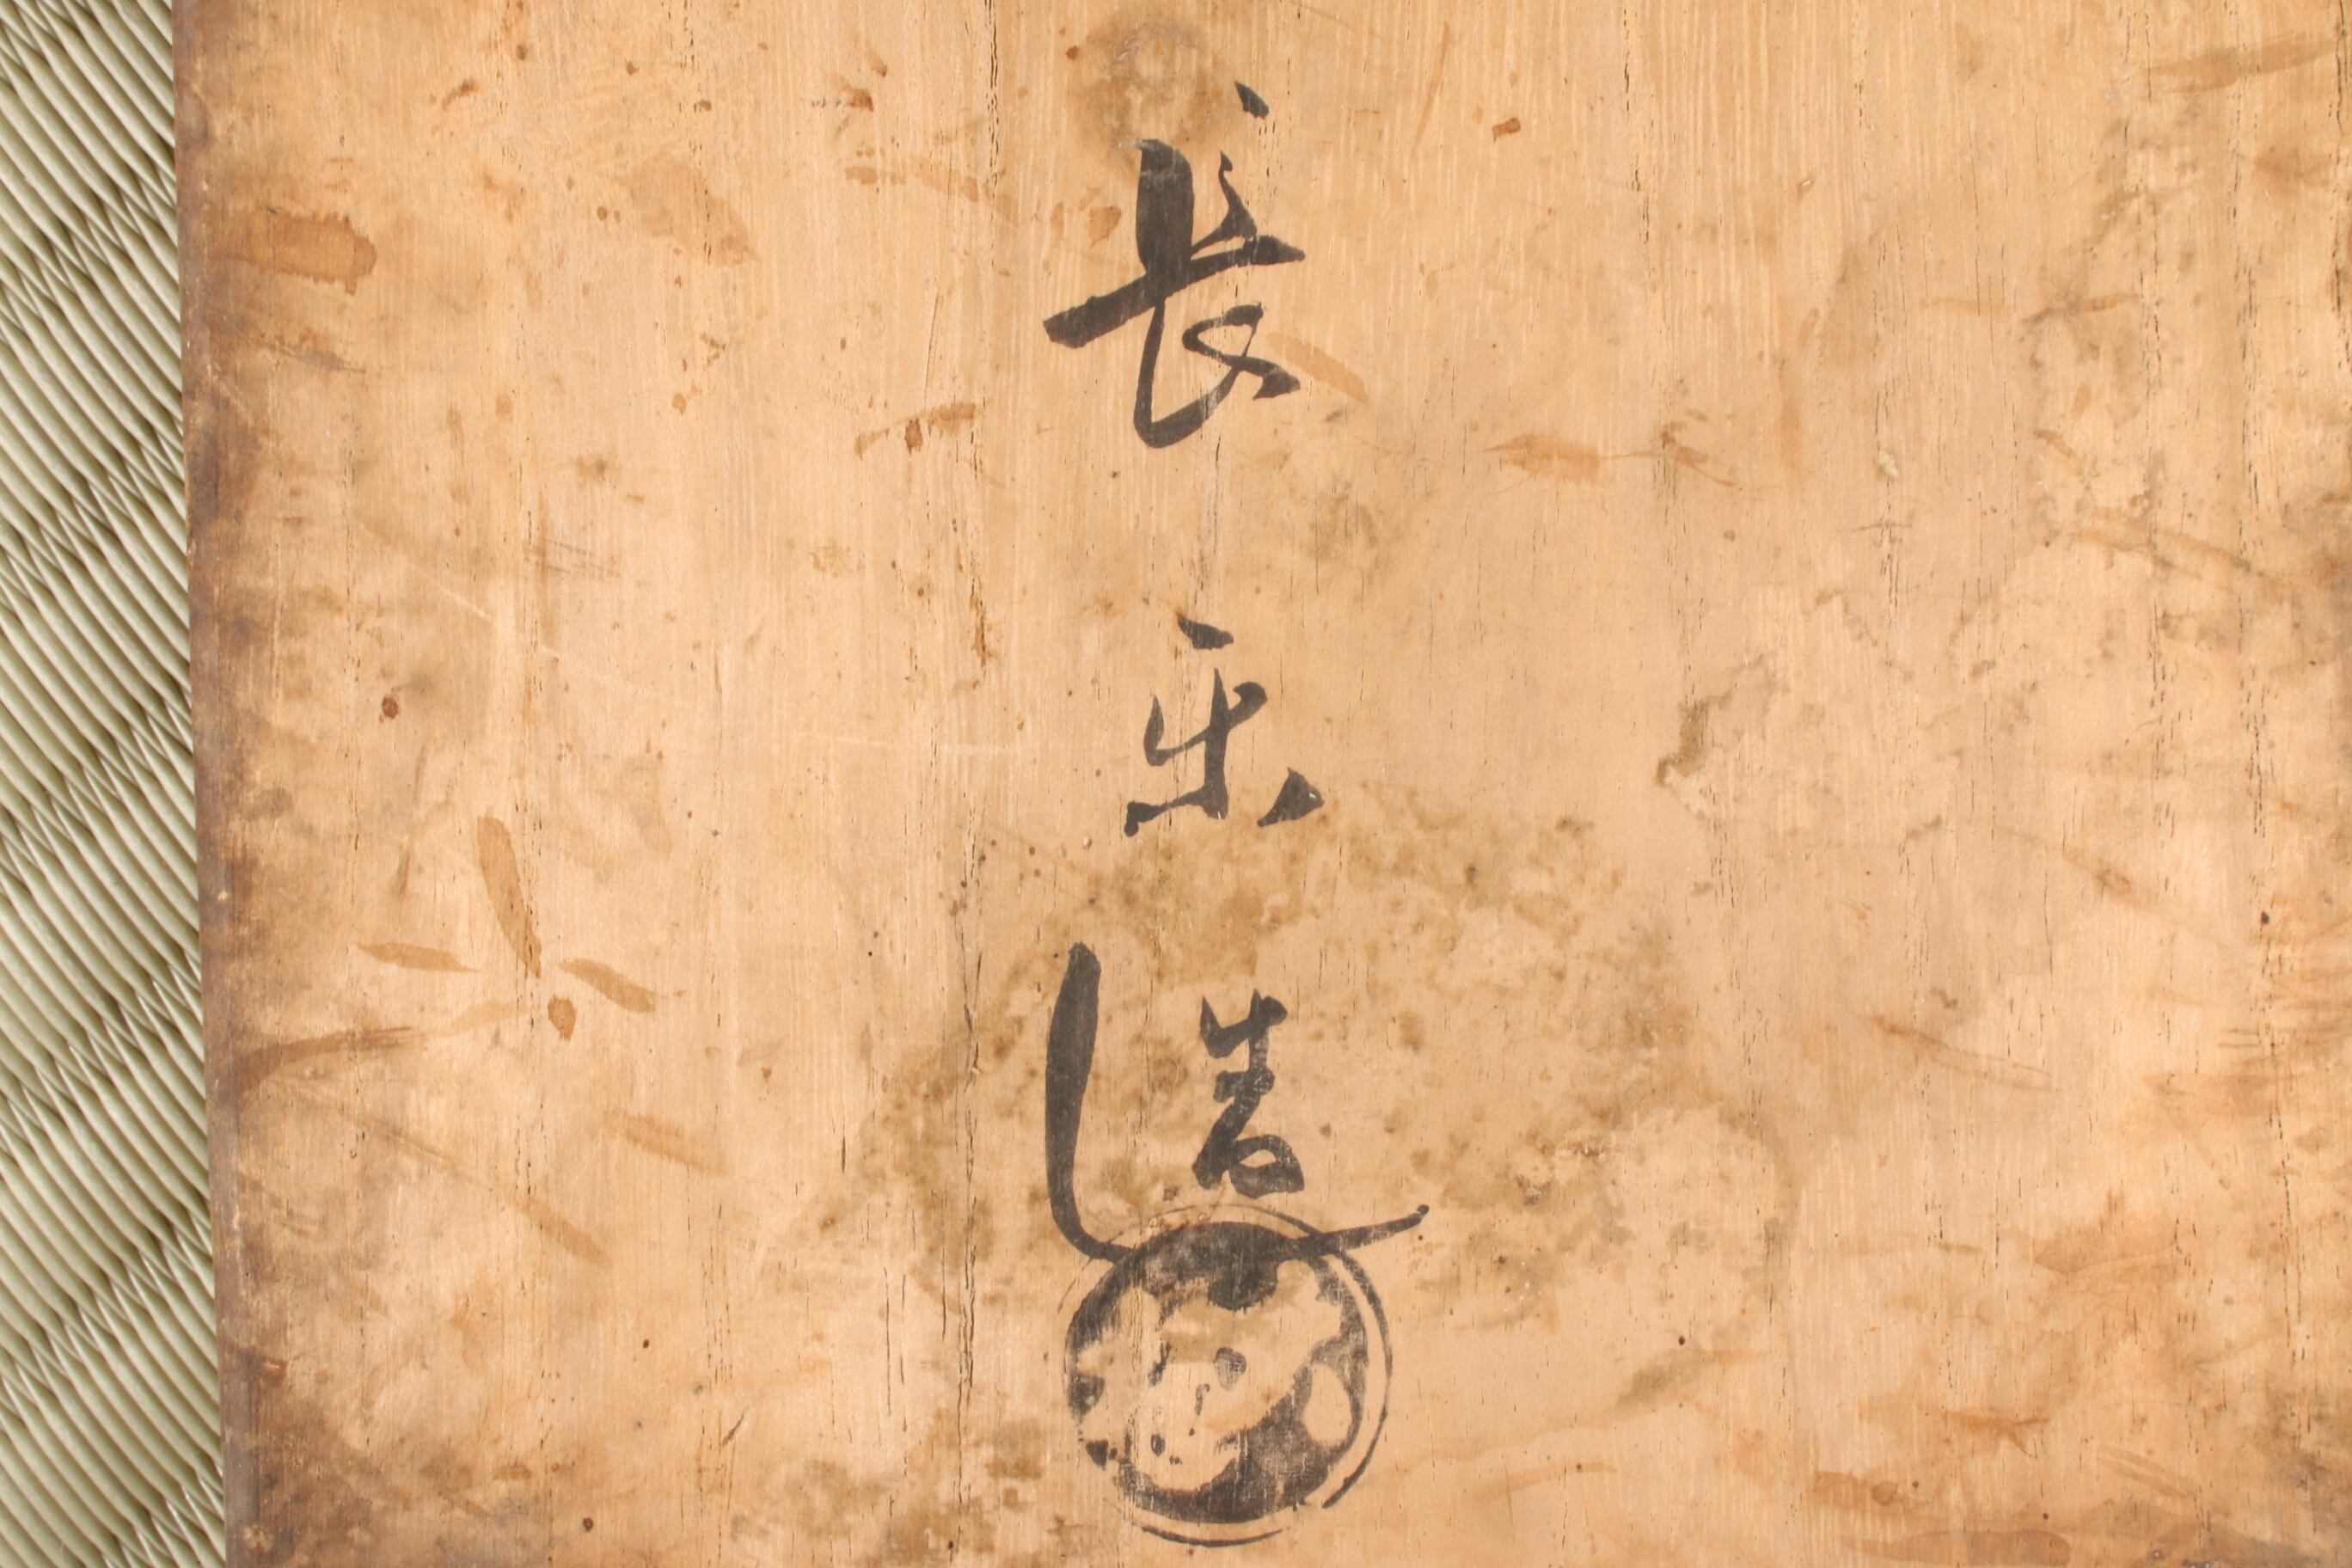 長楽造